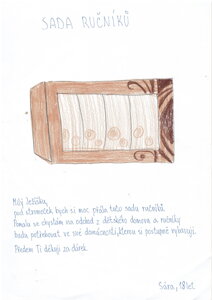 SADA RUČNÍKŮ
Milý Ježíšku,
pod stromeček bych si moc přála tuto sadu ručníků.
Pomalu se chystám na odchod z dětského domova a ručníky
budu potřebovat ve své domácnosti, kterou si postupně vybavuji.
Předem Ti děkuji za dárek.
Sára, 18 let